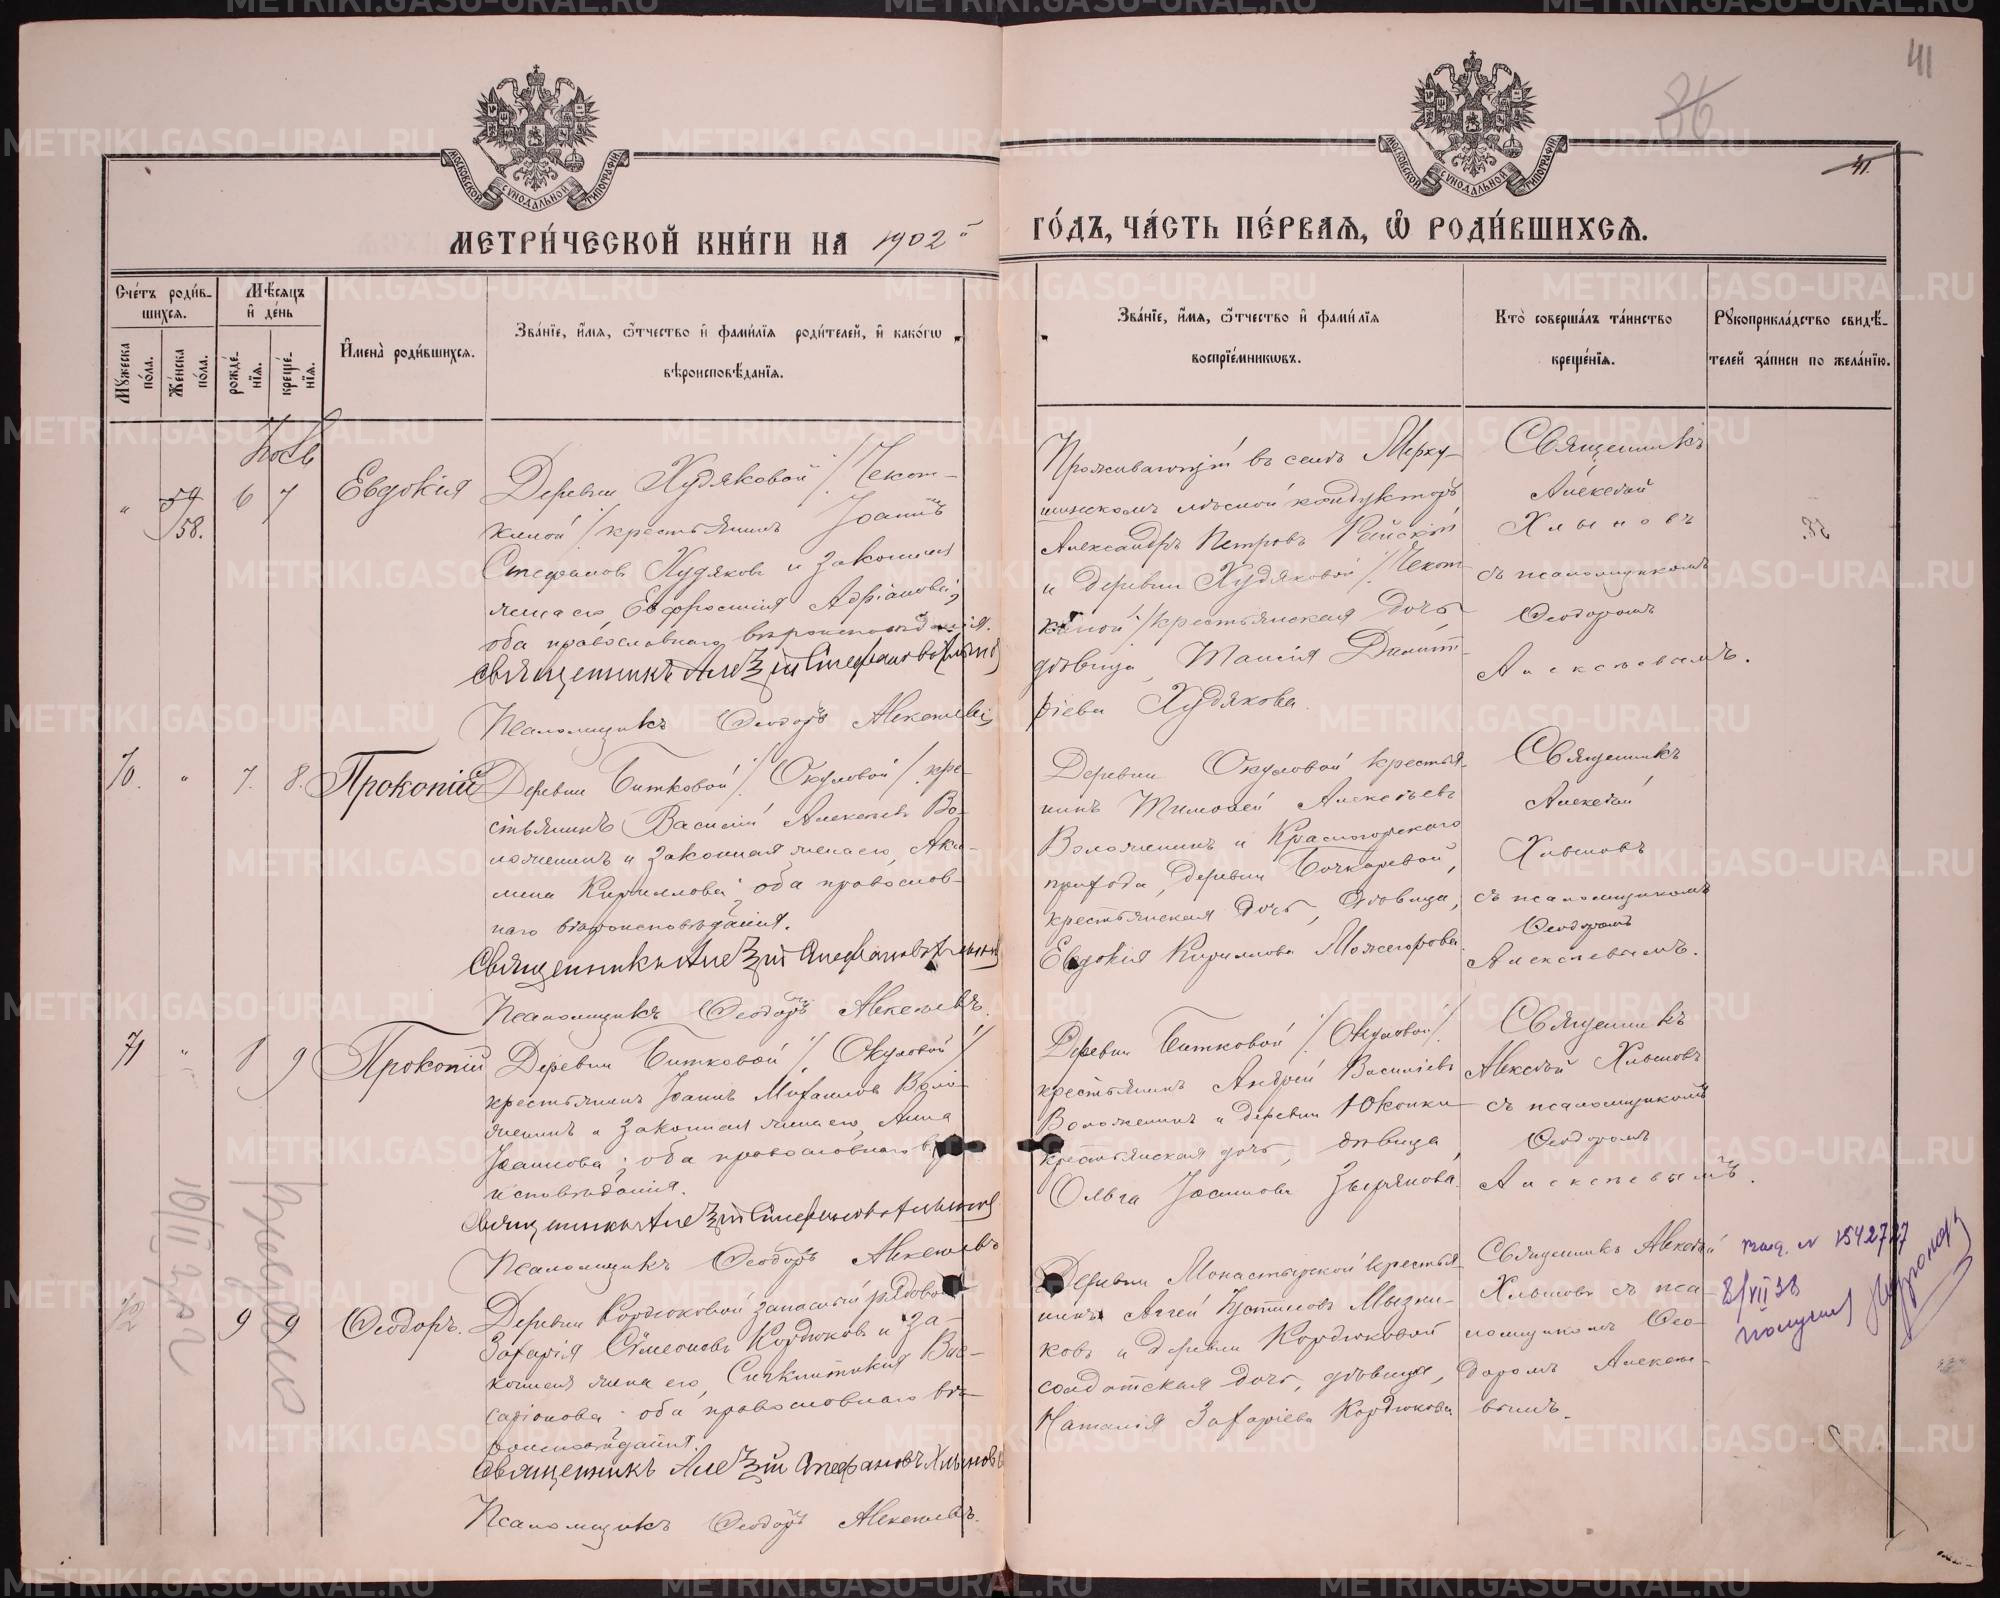 41
36
41.
МОСКОВСКОЙ СѴНОДАЛЬНОЙ ТИПОГРАФІИ
МОСКОВСКОЙ СѴНОДАЛЬНОЙ ТИПОГРАФІИ
МЕТРИ́ЧЕСКОЙ КНИ́ГИ НА 1902 й
ГО́ДЪ, ЧА́СТЬ ПЕ́РВАѦ, Ѡ҆ РОДИ́ВШИХСѦ.
Сче́тъ роди́в-
шихсѧ.
Мꙋ́жеска по́ла.
Же́нска по́ла.
Мѣ́сѧцъ
и҆ де́нь
рожде́-
нїѧ.
креще́-
нїѧ.
И҆мена̀ роди́вшихсѧ.
Зва́нїе, и҆́мѧ, ѻ҆́тчество и҆ фами́лїѧ роди́телей, и҆ како́гѡ
вѣроисповѣ́данїѧ.
Зва́нїе, и҆́мѧ, ѻ҆́тчество и҆ фами́лїѧ
воспрїе́мникѡвъ.
Кто̀ соверша́лъ та́инство
креще́нїѧ.
Рꙋкоприкла́дство свидѣ́-
телей за́писи по жела́нїю.
59
58.
6 7
Евдокія
Деревни Худяковой / Чекот-
киной / крестьянинъ Іоаннъ
Стефановъ Худяковъ и законная
жена его Евфросинія Адріанова,
оба православнаго вѣроисповѣданія.
Священникъ Алексій Стефановъ Хлыновъ
Псаломщикъ Ѳеодоръ Алексѣевъ
Проживающій въ селѣ Мерку-
шинскомъ лѣсной кондукторъ
Александръ Петровъ Райскій
и деревни Худяковой / Чекот-
киной / крестьянская дочь
дѣвица, Таисія Димит-
ріева Худякова.
Священникъ
Алексѣй
Хлыновъ
съ псаломщикомъ
Ѳеодоромъ
Алексѣевымъ.
70. " 7. 8.
Прокопій
Деревни Битковой / Окуловой / кре-
стьянинъ Василій Алексѣевъ Во-
ложенинъ и законная жена его, Аки-
лина Кириллова; оба православ-
наго вѣроисповѣданія.
Священникъ Алексій Стефановъ Хлыновъ
Псаломщикъ Ѳеодоръ Алексѣевъ.
Деревни Окуловой крестья-
нинъ Тимоѳей Алексѣевъ
Воложенинъ и Красногорскаго
прихода, деревни Бочкаревой,
крестьянская дочь, дѣвица,
Евдокія Кириллова Можегорова.
Священникъ
Алексѣй
Хлыновъ
съ псаломщикомъ
Ѳеодоромъ
Алексѣевымъ.
71 " 8 9
Прокопій
Деревни Битковой / Окуловой /
крестьянинъ Іоаннъ Михаиловъ Воло-
женинъ и законная жена его, Анна
Іоаннова; оба православнаго вѣро-
исповѣданія.
Священникъ Алексій Стефановъ Хлыновъ
Псаломщикъ Ѳеодоръ Алексѣевъ
Деревни Битковой / Окуловой /
крестьянинъ Андрей Василіевъ
Воложенинъ и деревни Юконки
крестьянская дочь, дѣвица,
Ольга Іоаннова Зырянова.
Священникъ
Алексѣй Хлыновъ
съ псаломщикомъ
Ѳеодоромъ
Алексѣевымъ.
72 9 9
Ѳеодоръ.
Деревни Кордюковой запасный рядовой
Захарія Сѵмеоновъ Кордюковъ и за-
конная жена его, Сигклитикія Вис-
саріонова; оба православнаго вѣ-
роисповѣданія.
Священникъ Алексій Стефановъ Хлыновъ
Псаломщикъ Ѳеодоръ Алексѣевъ.
Деревни Монастырской крестья-
нинъ Аггей Іустиновъ Мызни-
ковъ и деревни Кордюковой
солдатская дочь, дѣвица,
Наталія Захаріева Кордюкова
Священникъ Алексѣй
Хлыновъ съ пса-
ломщикомъ Ѳео-
доромъ Алексѣе-
вымъ.
8/VII 38
получил